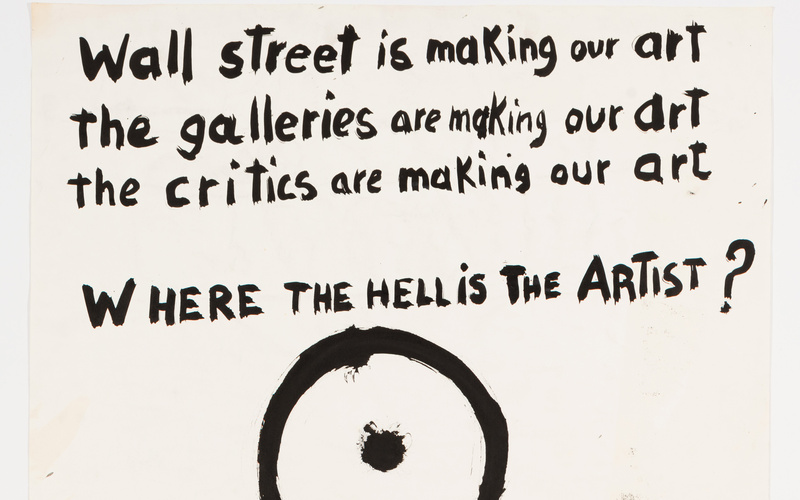 Wall street is making our art
the galleries are making our art
the critics are making our art
WHERE THE HELL is THE ARTIST?